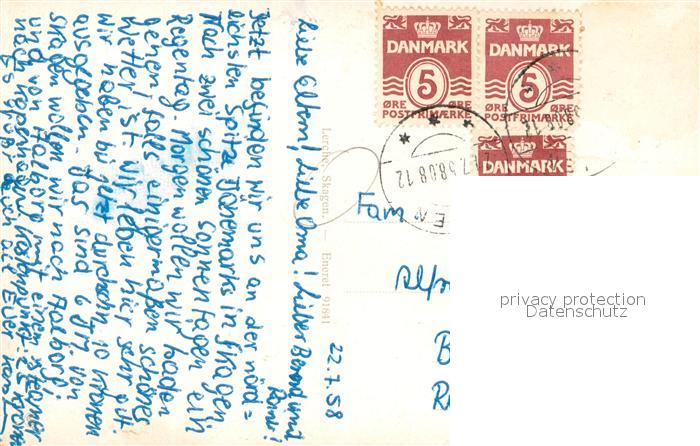 Liebe Eltern! Liebe Oma! Lieber Bernd und
22.7.58
Jetzt befinden wir uns an der nörd=
lichsten Spitze Dänemarks in Skagen
Nach zwei schönen Sonnentagen ein
Regentag Morgen wollen wir baden
gehen, falls einigermaßen schönes
Wetter ist. Wir leben hier sehr gut
wir haben bis jetzt durchschn. 10 Kronen
ausgegeben. Das sind 6 DM. Von
Skagen wollen wir nach Aalborg
und von Aalborg mit einem Steamer
nach Kopenhagen. Kostenpunkt: 25 Krone
Es grüßt Euch alle Euer
Lerche, Skagen. — Eneret 91841
DANMARK
5
ØRE ØRE
POSTFRIMÆRKE
DANMARK
5
ØRE ØRE
POSTFRIMÆRKE
DANMARK
58.08.12
Fam
privacy protection
Datenschutz